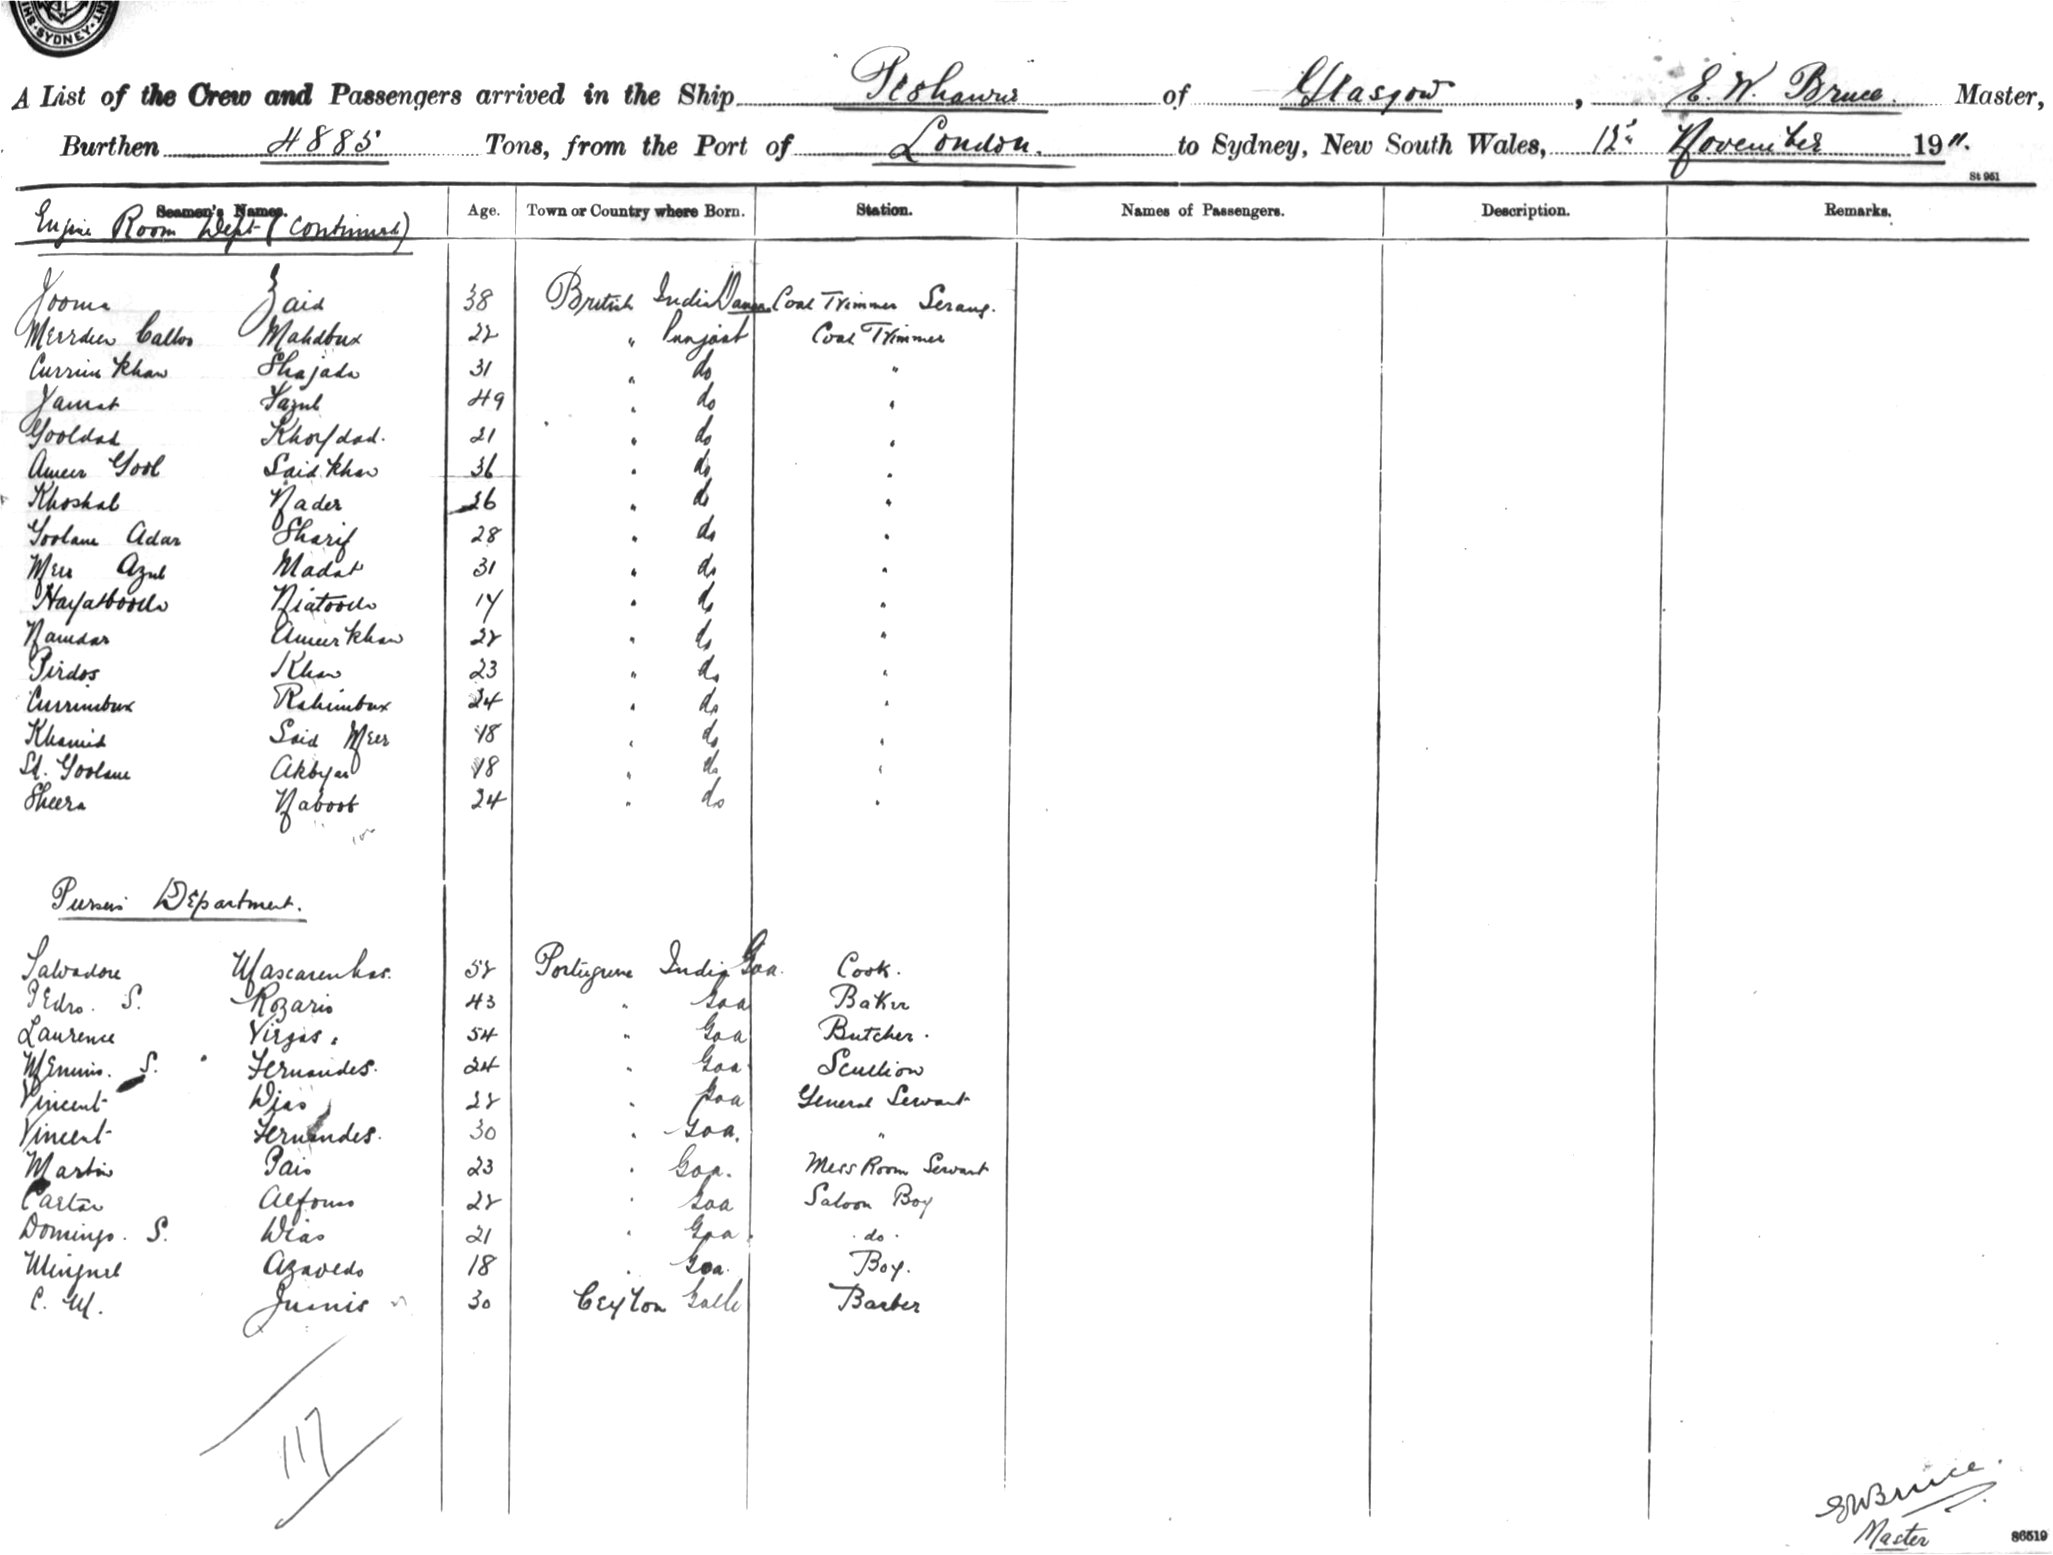 SYDNEY
A List of the Crew and Passengers arrived in the Ship Peshawur of Glasgow, E. W. Bruce. Master,
Burthen 4885 Tons, from the Port of London. to Sydney, New South Wales, 12th November 1911.
St 951
Seamen's Names. Age. Town or Country where Born. Station. Names of Passengers. Description. Remarks.
Engine Room Dept (Continued)
Jooma Zaid 38 British India Coal Trimmer Serang.
Mahdbux 22 " Punjaub Coal Trimmer
Currim Khan Shajada 31 " do "
Fazul 49 " do "
Gooldad 21 " do "
Ameer Gool Said Khan 36 " do "
Khoshal Nader 26 " do "
Goolam Adar Sharif 28 " do "
Meer Azul Madat 31 " do "
Hayatboolla 17 " do "
Namdar Ameer Khan 22 " do "
Pirdos Khan 23 " do "
Currimbux Rahimbux 24 " do "
Khamid Said Meer 18 " do "
Sd. Goolam 18 " do "
Sheera Naboob 24 " do "
Pursers Department.
Salvadore Mascarenhas. 52 Portuguese India Goa. Cook.
Pedro. S. Rozario 43 " Goa Baker
Laurence Virgas. 54 " Goa Butcher.
S. Fernandes. 24 " Goa Scullion
Vincent Dias 22 " Goa General Servant
Vincent Fernandes. 30 " Goa. "
Martin Pais 23 " Goa. Mess Room Servant
Alfonso 22 " Goa Saloon Boy
Domingo. S. Dias 21 " Goa. do.
Minguel Azavedo 18 " Goa. Boy.
C. M. Juanis 30 Ceylon Galle Barber
117
E W Bruce.
Master
86519